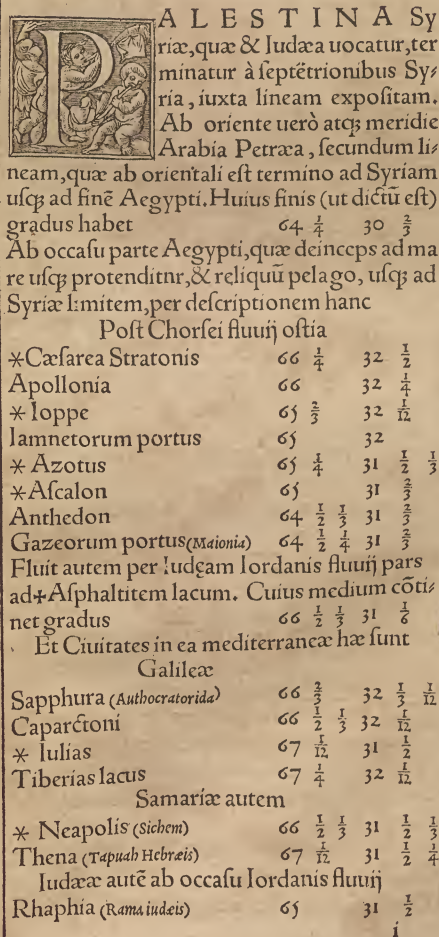 PALESTINA Sy
riæ, quæ & Iudæa uocatur, ter
minatur à ſeptẽtrionibus Sy⸗
ria, iuxta lineam expoſitam.
Ab oriente uerò atq; meridie
Arabia Petræa, ſecundum li⸗
neam, quæ ab orientali eſt termino ad Syriam
uſq; ad finẽ Aegypti. Huius finis (ut dictũ eſt)
gradus habet 64 1/4 30 2/3
Ab occaſu parte Aegypti, quæ deinceps ad ma
re uſq; protenditnr, & reliquũ pelago, uſq; ad
Syriæ limitem, per deſcriptionem hanc
Poſt Chorſei fluuij oſtia
*Cæſarea Stratonis 66 1/4 32 1/2
Apollonia 66 32 1/4
* Ioppe 65 2/3 32 1/12
Iamnetorum portus 65 32
* Azotus 65 1/4 31 1/2 1/3
*Aſcalon 65 31 2/3
Anthedon 64 1/2 1/3 31 2/3
Gazeorum portus (Maionia) 64 1/2 1/4 31 2/3
Fluit autem per Iudęam Iordanis fluuij pars
ad + Aſphaltitem lacum. Cuius medium cõti⸗
net gradus 66 1/2 1/3 31 1/6
Et Ciuitates in ea mediterraneæ hæ ſunt
Galileæ
Sapphura (Authocratorida) 66 2/3 32 1/3 1/12
Caparctoni 66 1/2 1/3 32 1/12
* Iulias 67 1/12 31 1/2
Tiberias lacus 67 1/4 32 1/12
Samariæ autem
* Neapolis (Sichem) 66 1/2 1/3 31 1/2 1/3
Thena (Tapuah Hebræis) 67 1/12 31 1/2 1/4
Iudææ autẽ ab occaſu Iordanis fluuij
Rhaphia (Rama iudæis) 65 31 1/2
i